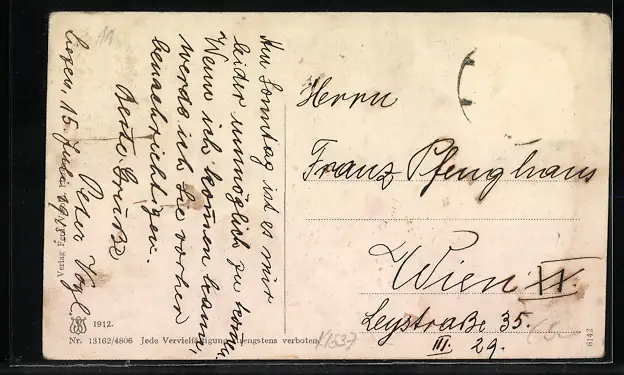 Am Sonntag ist es mir
leider unmöglich zu kommen.
Wenn ich kommen kann,
werde ich Sie vorher
benachrichtigen.
Beste Grüße
Peter Vogl.
15. Juli 1915
Herrn
Franz Pfenghaus
Wien XX.
Leystraße 35.
III. 29.
Verlag
1912.
Nr. 13162/4806 Jede Vervielfältigung strengstens verboten.
6142